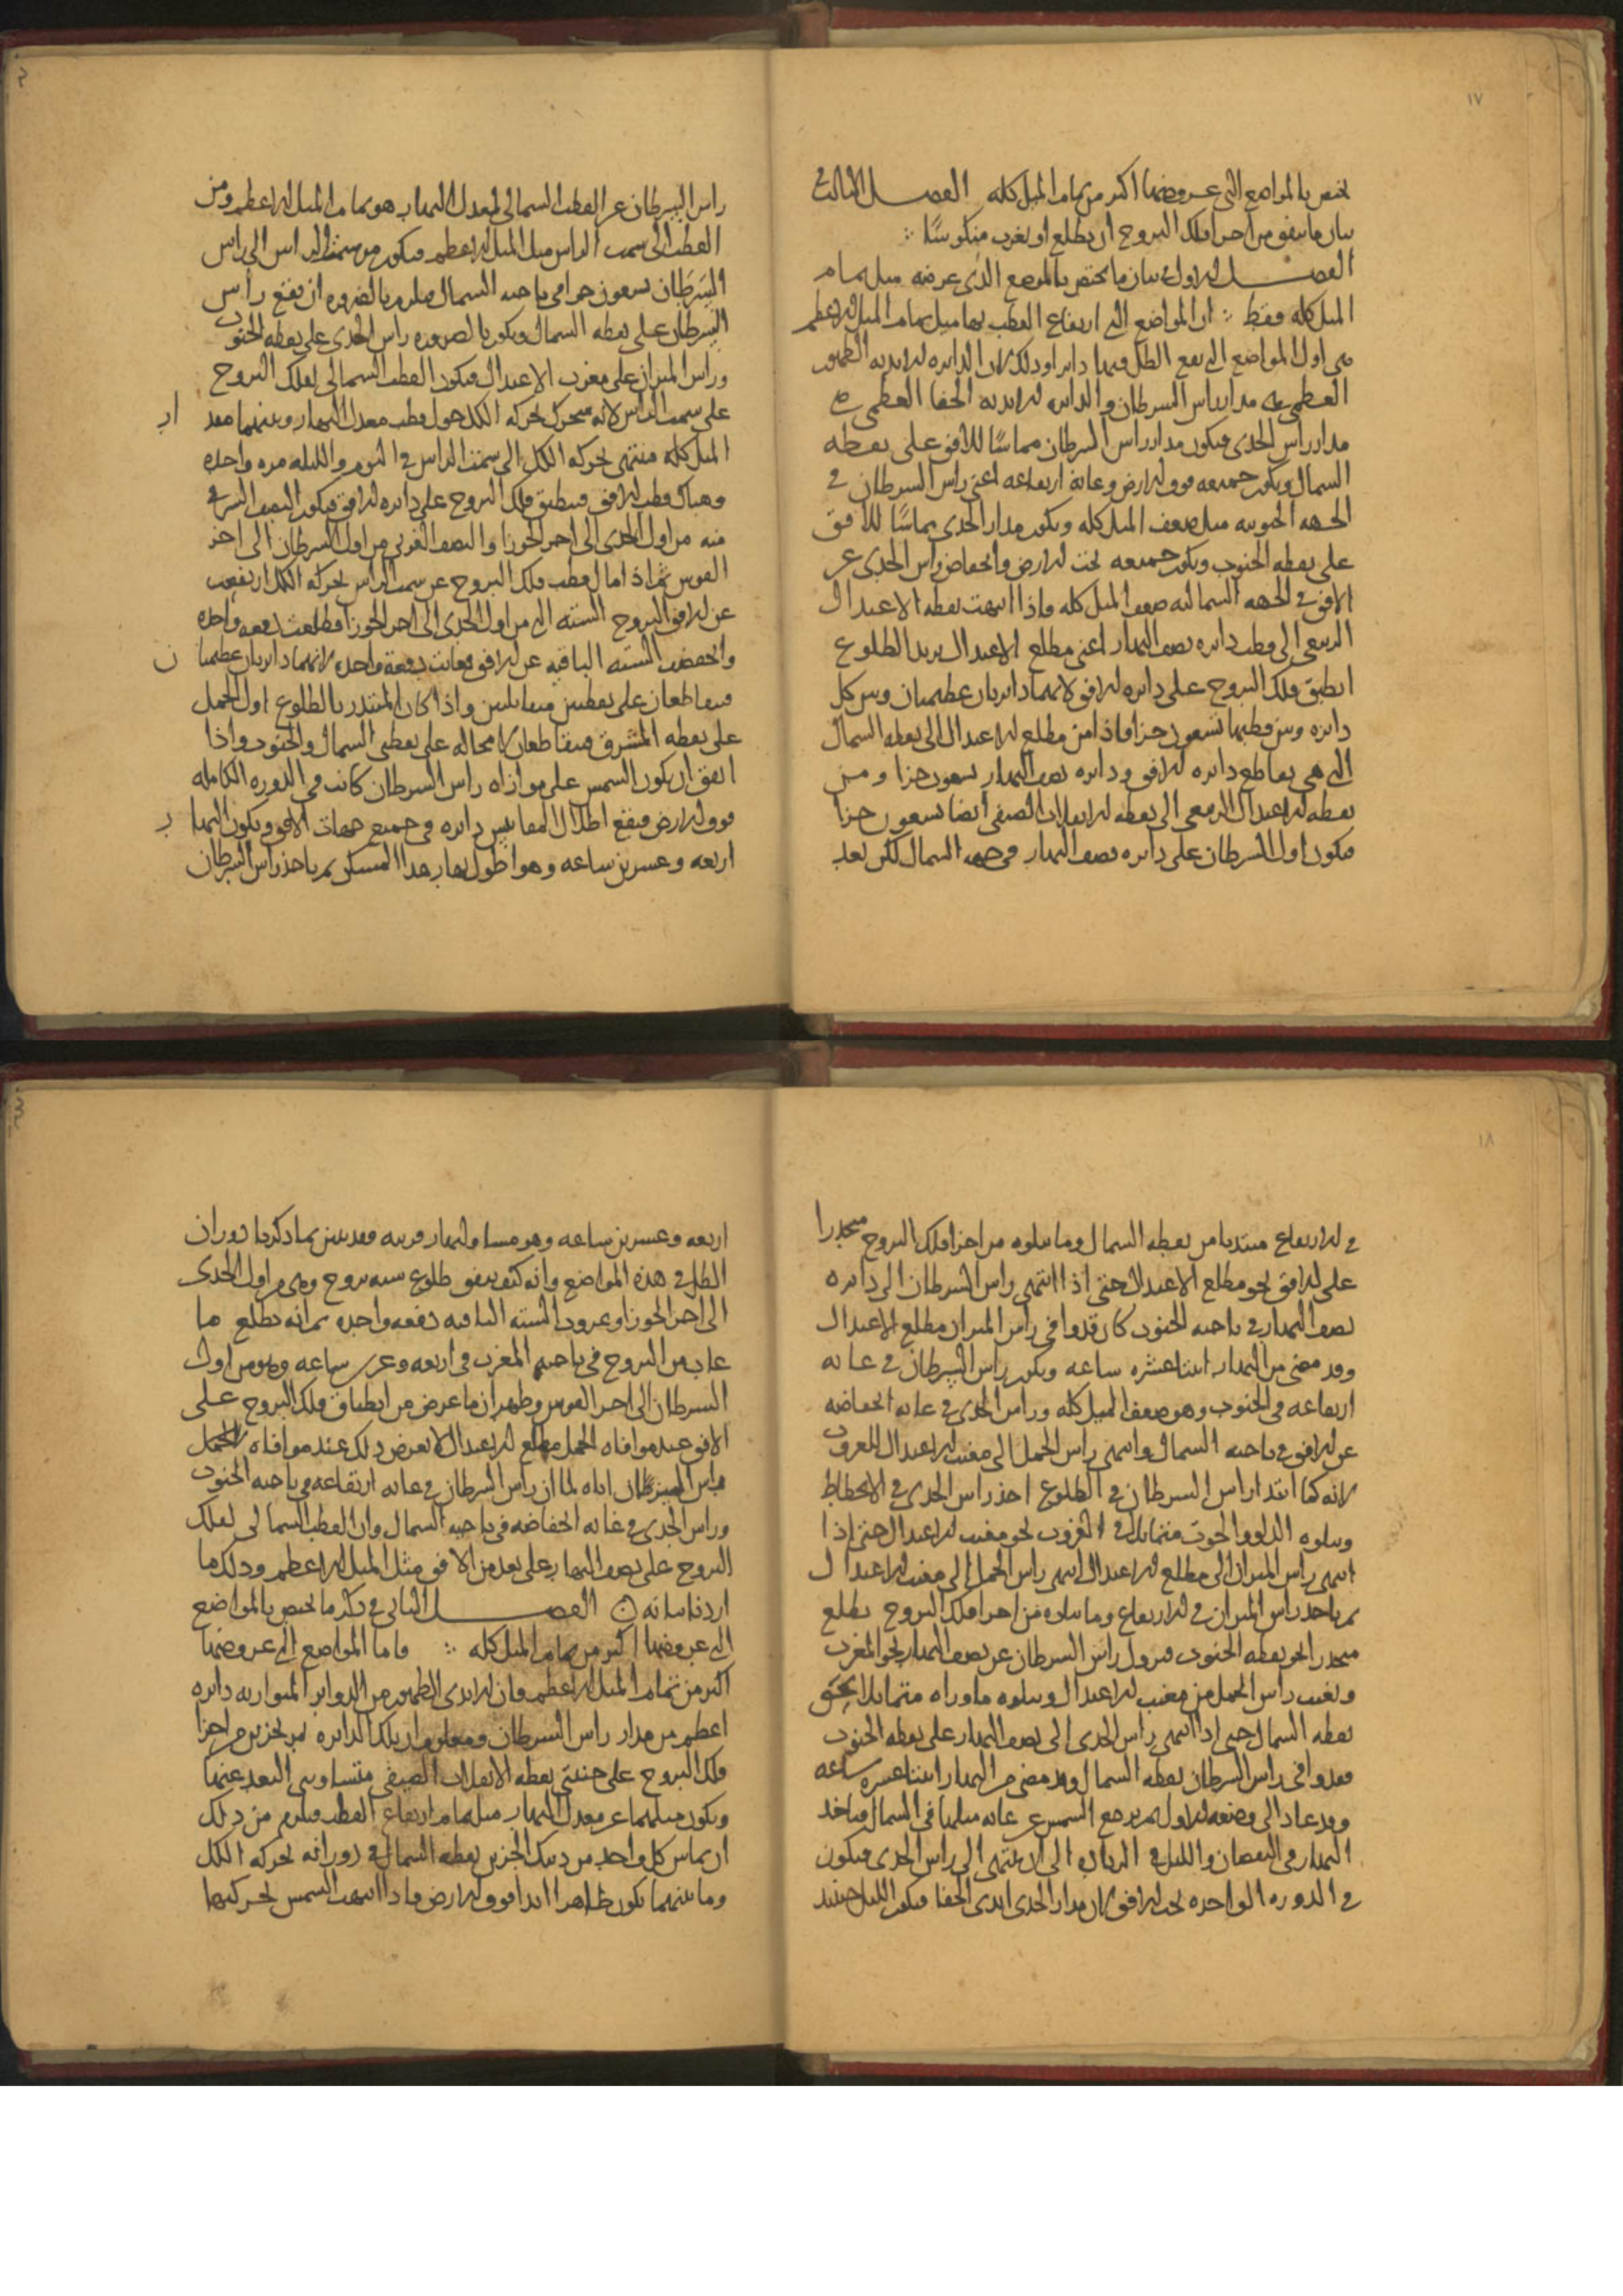 ١٧
يختص بالمواضع التي عروضها اكثر من تمام الميل كله الفصل الثالث في
بيان ما يتفق من اجزا فلك البروج ان يطلع او يغرب منكوسًا
الفصل الاول في بيان ما يختص بالموضع الذي عرضه مثل تمام
الميل كله فقط ان المواضع التي ارتفاع القطب بها مثل تمام الميل الاعظم
هي اول المواضع التي يقع الظل فيها دايرا وذلك لان الدايره الابديه الظهور
العظمى هي مدار راس السرطان والدايره الابديه الخفا العظمى هي
مدار راس الجدي فيكون مدار راس السرطان مماسًا للافق على نقطه
السمال ويكون جميعه فوق الارض وغاية ارتفاعه اعني راس السرطان في
الجهه الجنوبيه مثل ضعف الميل كله ويكون مدار الجدي مماسًا للافق
على نقطه الجنوب ويكون جميعه تحت الارض وانخفاض راس الجدي عن
الافق في الجهه الشماليه ضعف الميل كله واذا انتهت نقطه الاعتدال
الربيعي الى قطب دايره نصف النهار اعني مطلع الاعتدال يريد الطلوع
انطبق فلك البروج على دايره الافق لانهما دايرتان عظيمتان وبين كل
دايره وبين قطبها تسعون جزا فاذا من مطلع الاعتدال الى نقطه السمال
التي هي تقاطع دايره الافق ودايره نصف النهار تسعون جزا ومن
نقطه الاعتدال الربيعي الى نقطه الانقلاب الصيفي ايضا تسعون جزا
فيكون اول السرطان على دايره نصف النهار في جهه السمال لكن بعد
راس السرطان عن القطب السمالي لمعدل النهار هو تمام الميل الاعظم ومن
القطب الى سمت الراس مثل الميل الاعظم فيكون من سمت الراس الى راس
السرطان تسعون جزا في ناحيه السمال فيلزم بالضروره ان يقع راس
السرطان على نقطه السمال ويكون بالضروره راس الجدي على نقطه الجنوب
وراس الميزان على مغرب الاعتدال فيكون القطب السمالي لفلك البروج
على سمت الراس لانه متحرك بحركه الكل حول قطب معدل النهار وبينهما بعد
الميل كله فينتهي بحركه الكل الى سمت الراس في اليوم والليله مره واحده
وهناك قطب الافق فينطبق فلك البروج على دايره الافق فيكون النصف الشرقي
منه من اول الجدي الى اخر الجوزا والنصف الغربي من اول السرطان الى اخر
القوس ثم اذا مال قطب فلك البروج عن سمت الراس بحركه الكل ارتفعت
عن الافق البروج السته التي من اول الجدي الى اخر الجوزا فطلعت دفعه واحده
وانخفضت السته الباقيه عن الافق فغابت دفعة واحده لانهما دايرتان عظيمتان
فيتقاطعان على نقطتين متقابلتين واذا كان المبتدي بالطلوع اول الحمل
على نقطه المشرق فيتقاطعان لا محاله على نقطتي السمال والجنوب واذا
اتفق ان يكون السمس على موازاه راس السرطان كانت في الدوره الكامله
فوق الارض فيقع اظلال المقاييس دايره في جميع جهات الافق ويكون النهار
اربعه وعسرين ساعه وهو اطول نهار هذا المسكن ثم ياخذ راس السرطان
١٨
في الارتفاع مبتديا من نقطه السمال وما يتلوه من اجزا فلك البروج منحدرا
على الافق نحو مطلع الاعتدال حتى اذا انتهى راس السرطان الى دايره
نصف النهار في ناحيه الجنوب كان قد وافى راس الميزان مطلع الاعتدال
وقد مضى من النهار اثنتا عشره ساعه ويكون راس السرطان في غايه
ارتفاعه في الجنوب وهو ضعف الميل كله وراس الجدي في غايه انخفاضه
عن الافق في ناحيه السمال وانتهى راس الحمل الى مغيب الاعتدال المعروف
لانه كما ابتدا راس السرطان في الطلوع اخذ راس الجدي في الانحطاط
ويتلوه الدلو والحوت متمايلا في الغروب نحو مغيب الاعتدال حتى اذا
انتهى راس الميزان الى مطلع الاعتدال انتهى راس الحمل الى مغيب الاعتدال
ثم ياخذ راس الميزان في الارتفاع وما يتلوه من اجزا فلك البروج يطلع
منحدرا نحو نقطه الجنوب فيزول راس السرطان عن نصف النهار نحو المغرب
ويغيب راس الحمل من مغيب الاعتدال ويتلوه ما وراه متمايلا نحو
نقطه السمال حتى اذا انتهى راس الجدي الى نصف النهار على نقطه الجنوب
فقد وافى راس السرطان نقطه السمال وقد مضى من النهار اثنتا عسره ساعه
وقد عاد الى وضعه الاول ثم يرجع السمس عن غايه ميلها في السمال فياخذ
النهار في النقصان والليل في الزياده الى ان ينتهي الى راس الجدي فيكون
في الدوره الواحده تحت الافق لان مدار الجدي ابدي الخفا فيكون الليل حينيذ
اربعه وعسرين ساعه وهو مساو لنهار قرينه فقد تبين بما ذكرنا دوران
الظل في هذه المواضع وانه كيف يتفق طلوع سته بروج وهي من اول الجدي
الى اخر الجوزا وغروب السته الباقيه دفعه واحده ثم انه يطلع ما
غاب من البروج في ناحيه المغرب في اربعه وعشرين ساعه وهو من اول
السرطان الى اخر القوس وظهر ان ما عرض من انطباق فلك البروج على
الافق عند موافاه الحمل مطلع الاعتدال لا يعرض ذلك عند موافاه الحمل
راس السرطان اياه لما ان راس السرطان في غايه ارتفاعه في ناحيه الجنوب
وراس الجدي في غايه انخفاضه في ناحيه السمال وان القطب السمالي لفلك
البروج على نصف النهار على بعد من الافق مثل الميل الاعظم وذلك ما
اردنا بيانه الفصل الثاني في ذكر ما يختص بالمواضع
التي عروضها اكثر من تمام الميل كله واما المواضع التي عروضها
اكثر من تمام الميل الاعظم فان الابدي الظهور من الدواير المتوازيه دايره
اعظم من مدار راس السرطان ومعلوم ان تلك الدايره تمر بجزين من اجزا
فلك البروج على جنبتي نقطه الانقلاب الصيفي متساويي البعد عنها
ويكون ميلهما عن معدل النهار مثل تمام ارتفاع القطب فيلزم من ذلك
ان يماس كل واحد من ذينك الجزين نقطه السمال في دورانه بحركه الكل
وما بينهما يكون ظاهرا ابدا فوق الارض فاذا انتهت السمس بحركتها